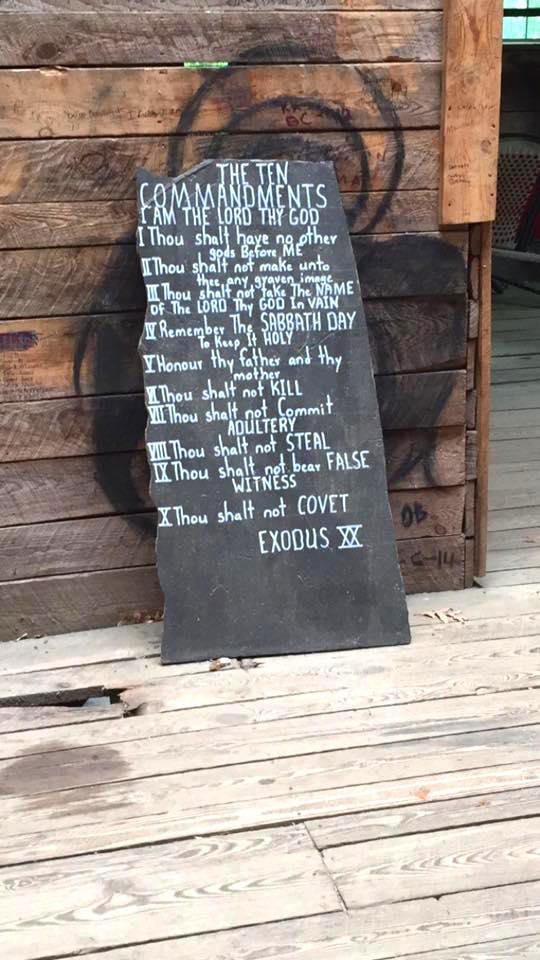 THE TEN
COMMANDMENTS
I AM THE LORD THY GOD
I Thou shalt have no other
gods Before ME
II Thou shalt not make unto
thee any graven image
III Thou shalt not take The NAME
OF The LORD Thy GOD In VAIN
IV Remember The SABBATH DAY
To Keep It HOLY
V Honour thy father and thy
mother
VI Thou shalt not KILL
VII Thou shalt not Commit
ADULTERY
VIII Thou shalt not STEAL
IX Thou shalt not bear FALSE
WITNESS
X Thou shalt not COVET
EXODUS XX
DB